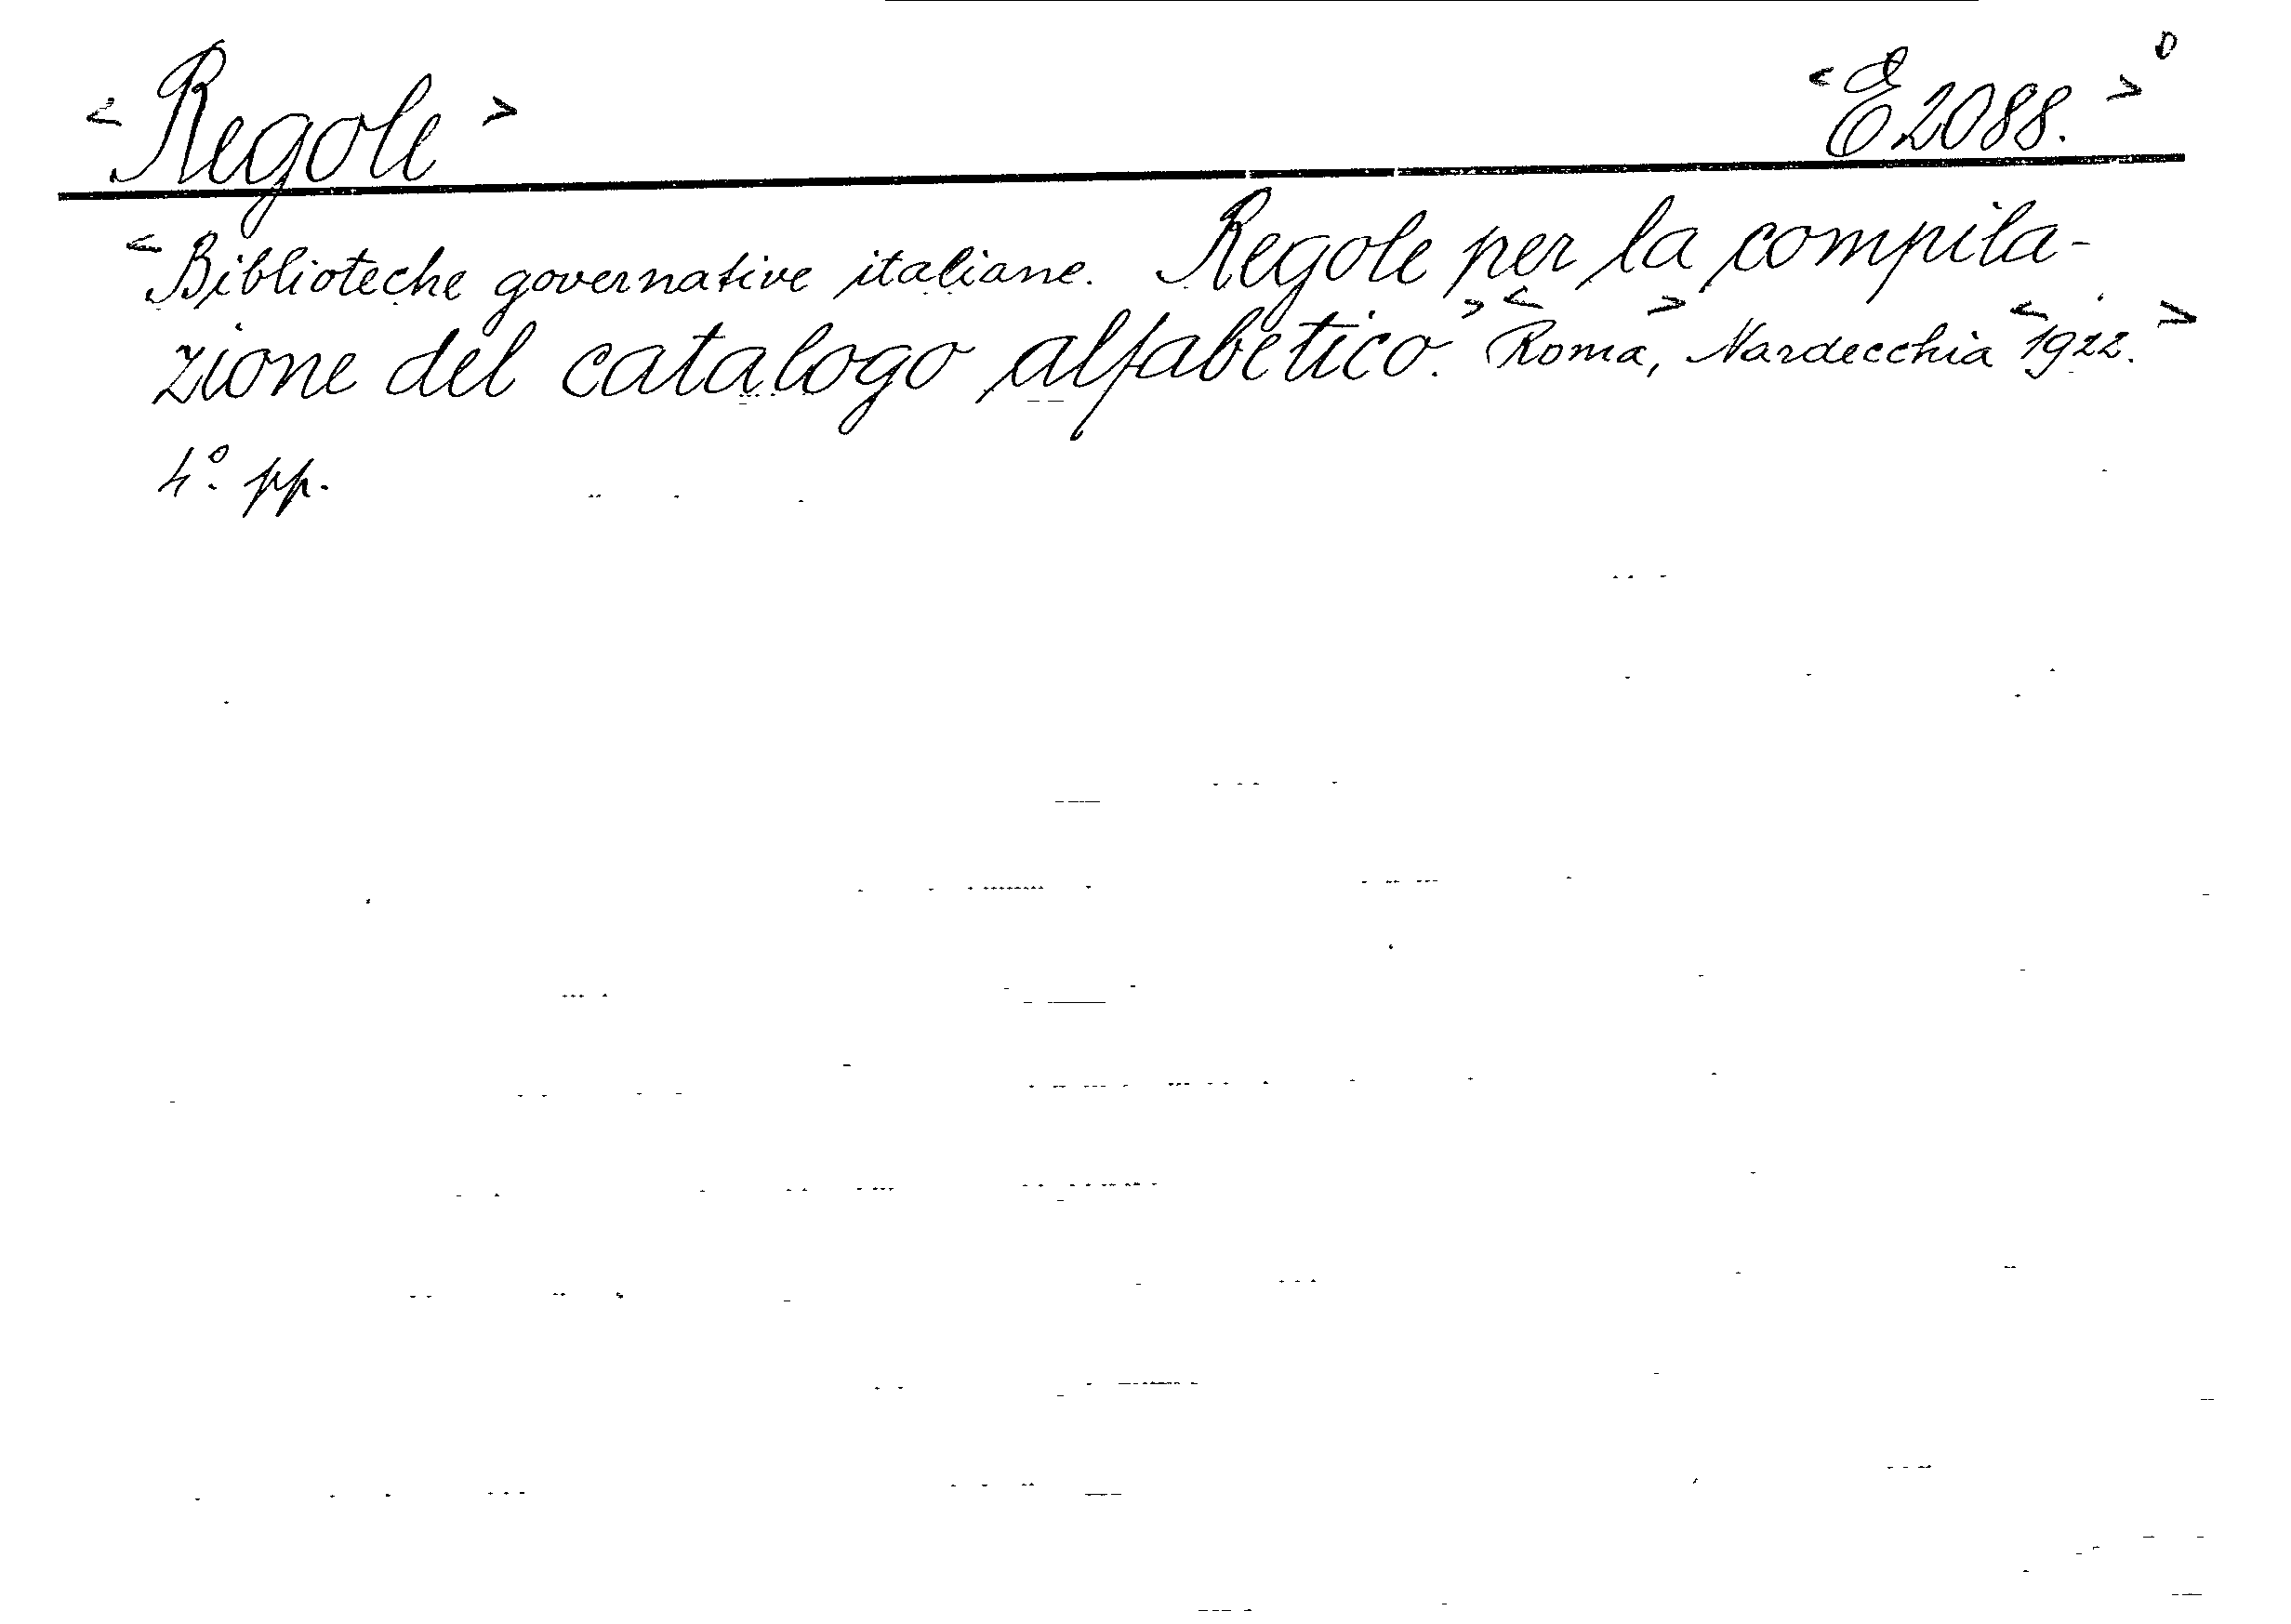 <Regole> <E2088.> 0
<Biblioteche governative italiane. Regole per la compila-
zione del catalogo alfabetico.> <Roma,> Nardecchia <1922.>
4° pp.